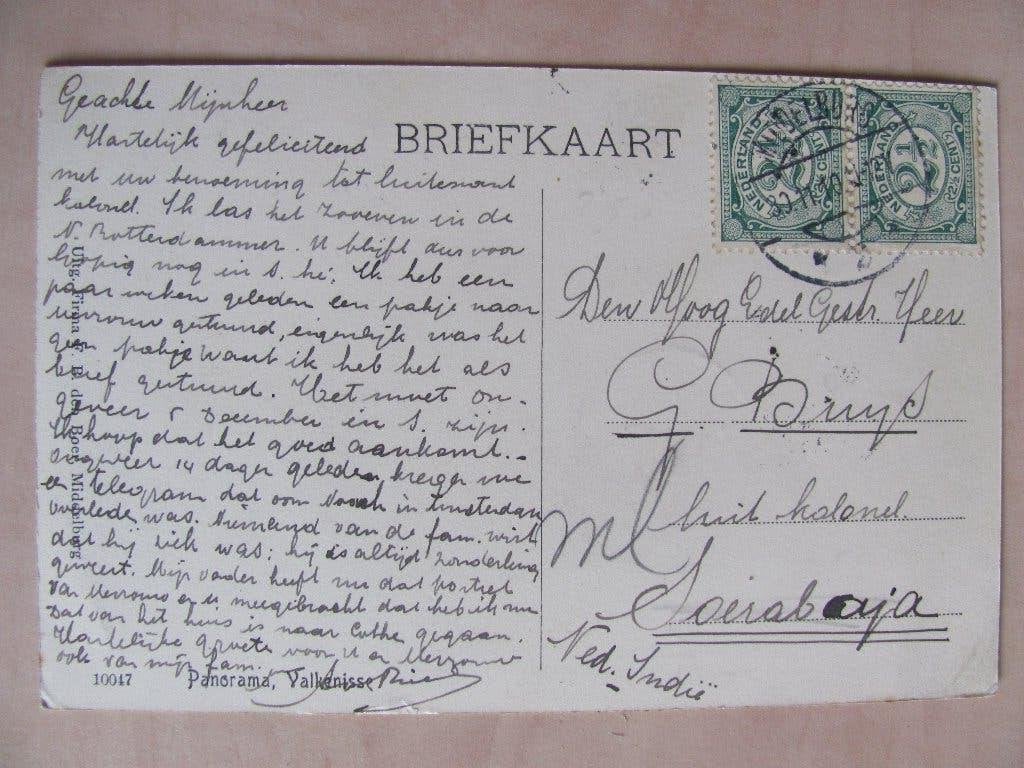 Geachte Mijnheer
Hartelijk gefeliciteerd
met uw benoeming tot luitenant
kolonel. Ik las het zooeven in de
N. Rotterdammer. U blijft dus voor
loopig nog in S. hè? Ik heb een
paar weken geleden een pakje naar
mevrouw gestuurd, eigenlijk was het
geen pakje want ik heb het als
brief gestuurd. Het moet on-
geveer 5 December in S. zijn.
Ik hoop dat het goed aankomt. –
Ongeveer 14 dagen geleden kregen we
een telegram dat oom in Amsterdam
overleden was. Niemand van de fam. wist
dat hij ziek was; hij is altijd zonderling
geweest. Mijn vader heeft nu dat portret
van Mevrouw en u meegebracht dat heb ik nu
Dat van het huis is naar gegaan.
Hartelijke groete voor U en Mevrouw
ook van mijn fam.
BRIEFKAART
NEDERLAND
2½
CENT
NEDERLAND
2½
CENT
MIDDELBURG
Den Hoog Edel Gestr. Heer
G Buys
luit kolonel
Soerabaja
Ned. Indië
Uitg. Firma F. B. den Boer, Middelburg
10047 Panorama, Valkenisse